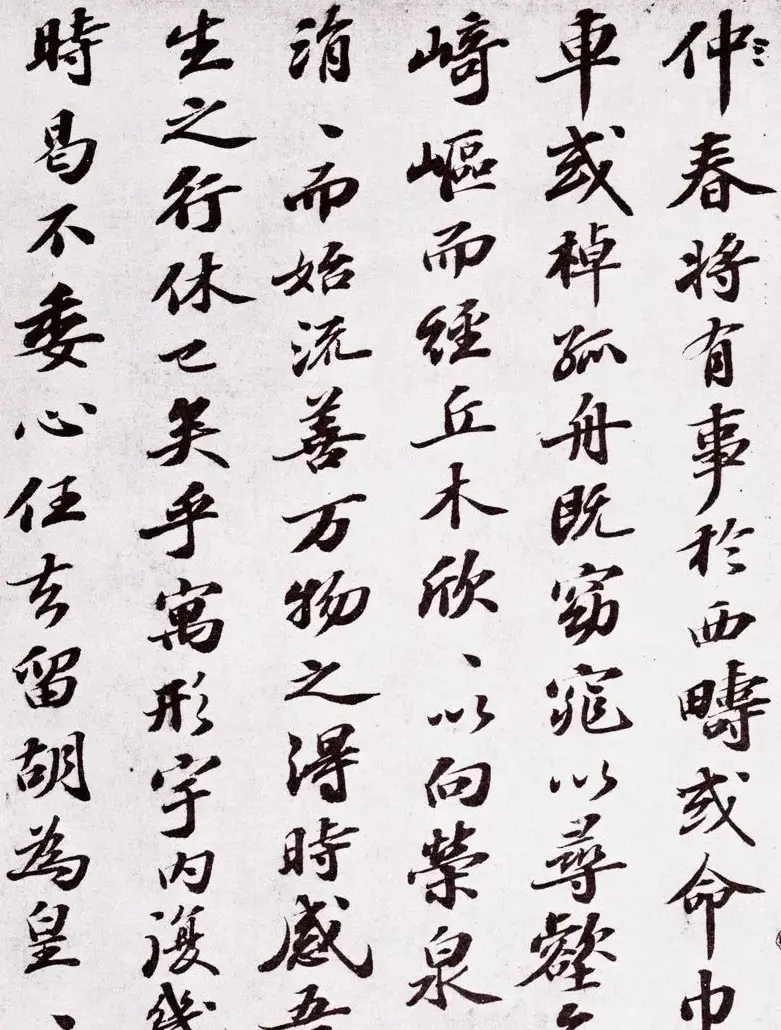 仲春將有事於西疇或命巾
車或棹孤舟既窈窕以尋壑
崎嶇而經丘木欣、以向榮泉
涓、而始流善万物之得時感吾
生之行休已矣乎寓形宇內復幾
時曷不委心任去留胡為皇、